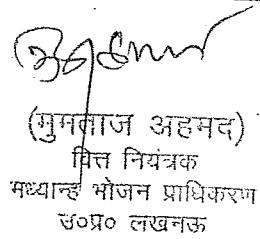 (मुमताज अहमद)
वित्त नियंत्रक
मध्यान्ह भोजन प्राधिकरण
उ०प्र० लखनऊ